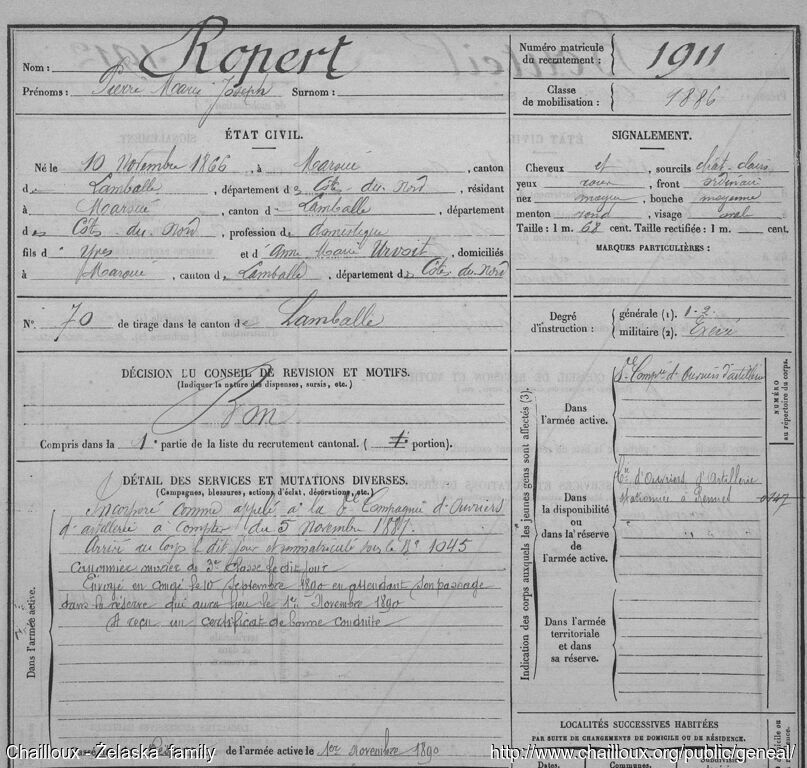 Nom : Ropert
Prénoms : Pierre Marie Joseph Surnom :
Numéro matricule du recrutement : 1911
Classe de mobilisation : 1886
ÉTAT CIVIL.
Né le 10 Novembre 1866, à Maroué, canton
de Lamballe, département des Côtes-du-Nord, résidant
à Maroué, canton de Lamballe, département
des Côtes-du-Nord, profession de domestique
fils d' Yves et d' Anne Marie Urvoit, domiciliés
à Maroué, canton de Lamballe, département des Côtes du Nord
SIGNALEMENT.
Cheveux et sourcils chât. clairs
yeux roux, front ordinaire
nez moyen, bouche moyenne
menton rond, visage ovale
Taille : 1 m. 68 cent. Taille rectifiée : 1 m. cent.
MARQUES PARTICULIÈRES :
N° 70 de tirage dans le canton de Lamballe
Degré d'instruction :
générale (1). 1-2.
militaire (2). Exercé
DÉCISION DU CONSEIL DE REVISION ET MOTIFS.
(Indiquer la nature des dispenses, sursis, etc.)
Bon
Compris dans la 1e partie de la liste du recrutement cantonal. ( portion).
DÉTAIL DES SERVICES ET MUTATIONS DIVERSES.
(Campagnes, blessures, actions d'éclat, décorations, etc.)
Incorporé comme appelé à la Compagnie d'Ouvriers
d'artillerie à compter du 5 Novembre 1887.
Arrivé au Corps le dit jour et immatriculé sous le N° 1045
Canonnier ouvrier de 3e classe le dit jour
Envoyé en congé le 10 Septembre 1890 en attendant son passage
dans la réserve qui aura lieu le 1er Novembre 1890
A reçu un certificat de bonne conduite
Dans l'armée active.
de l'armée active le 1er Novembre 1890
Indication des corps auxquels les jeunes gens sont affectés (3).
NUMÉRO
au répertoire du corps.
Dans
l'armée active.
Compie d'Ouvriers d'artillerie
Dans
la disponibilité
ou
dans la réserve
de
l'armée active.
Cie d'Ouvriers d'Artillerie
stationnée à Rennes
Dans l'armée
territoriale
et dans
sa réserve.
LOCALITÉS SUCCESSIVES HABITÉES
PAR SUITE DE CHANGEMENTS DE DOMICILE OU DE RÉSIDENCE.
Dates. Communes. Subdivision
Chailloux - Zelaska family
http://www.chailloux.org/public/geneal/